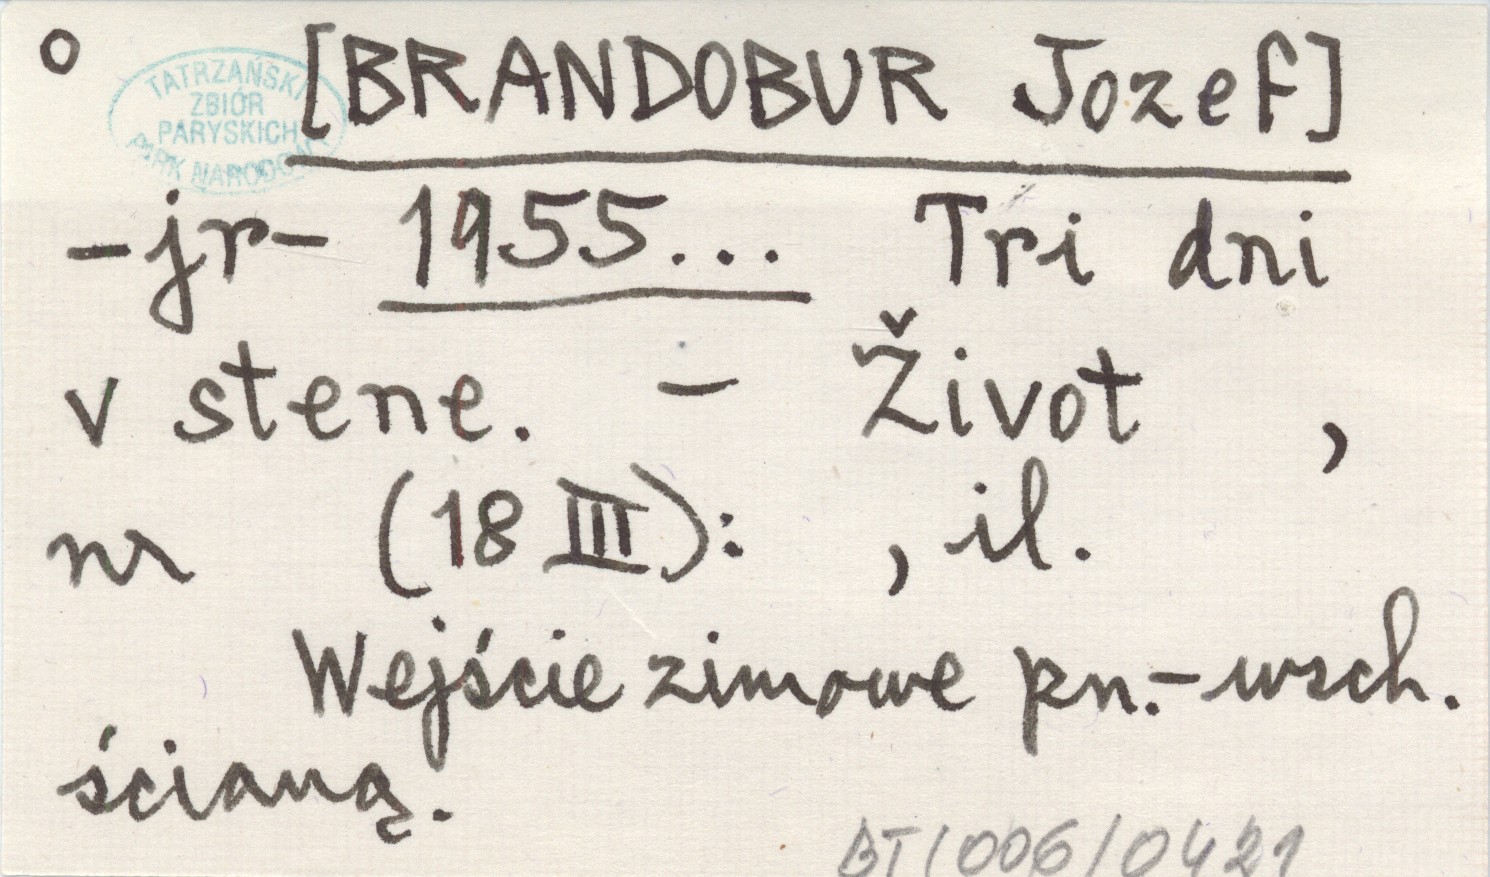 o [BRANDOBUR Jozef]
TATRZAŃSKI
ZBIÓR
PARYSKICH
PARK NARODOWY
-jr- 1955... Tri dni
v stene. - Život ,
nr (18 III): , il.
Wejście zimowe pn.-wsch.
ścianą.
BT/006/0421